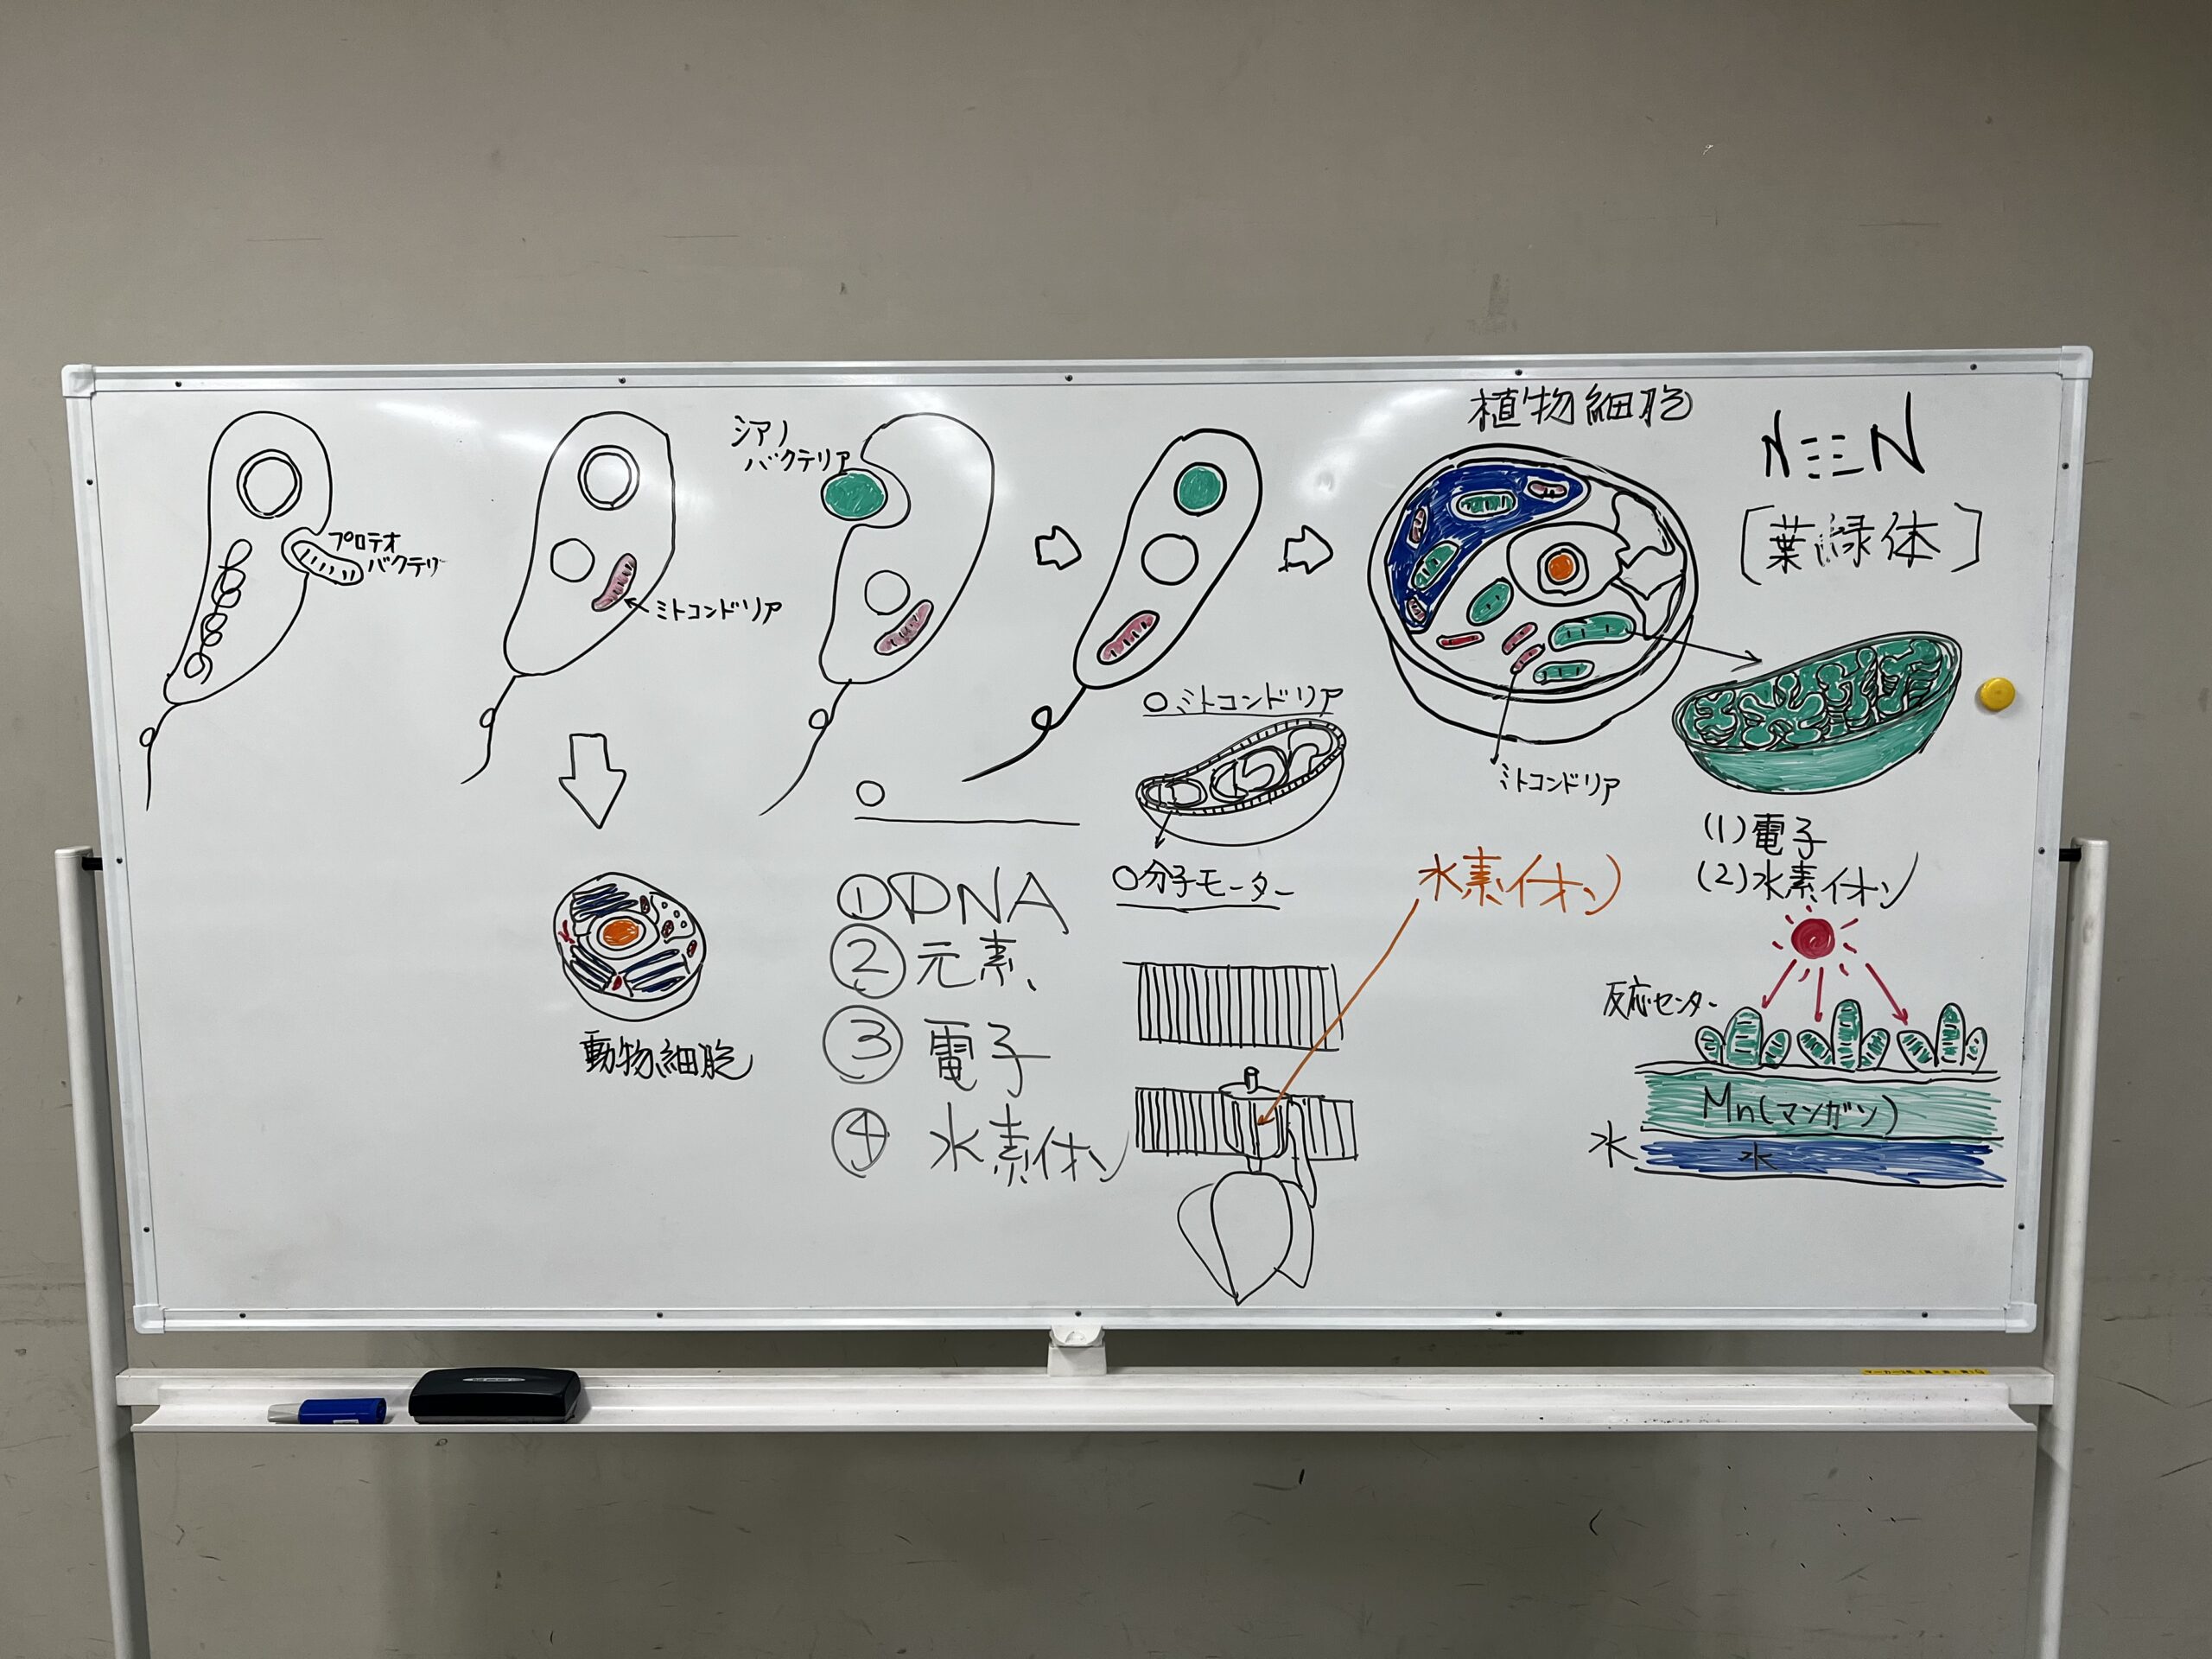 プロテオ
バクテリア
ミトコンドリア
シアノ
バクテリア
動物細胞
①DNA
②元素
③電子
④水素イオン
○ミトコンドリア
○分子モーター
水素イオン
植物細胞
ミトコンドリア
N≡≡N
[葉緑体]
(1)電子
(2)水素イオン
反応センター
Mn(マンガン)
水
水